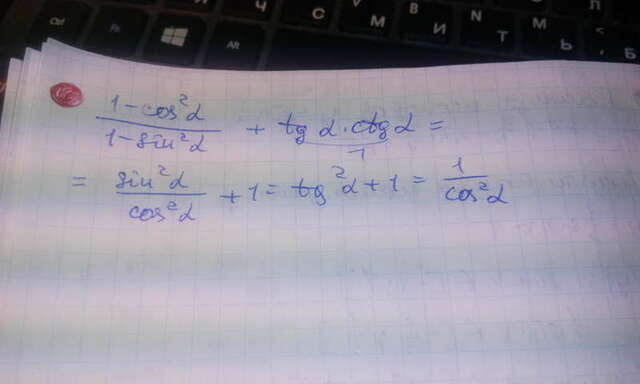 Ctrl Fn Alt Ч С М В И N Т М Ь Б Л
1-cos²α
1-sin²α + tg α · ctg α =
1
= sin²α
cos²α + 1 = tg²α + 1 = 1
cos²α